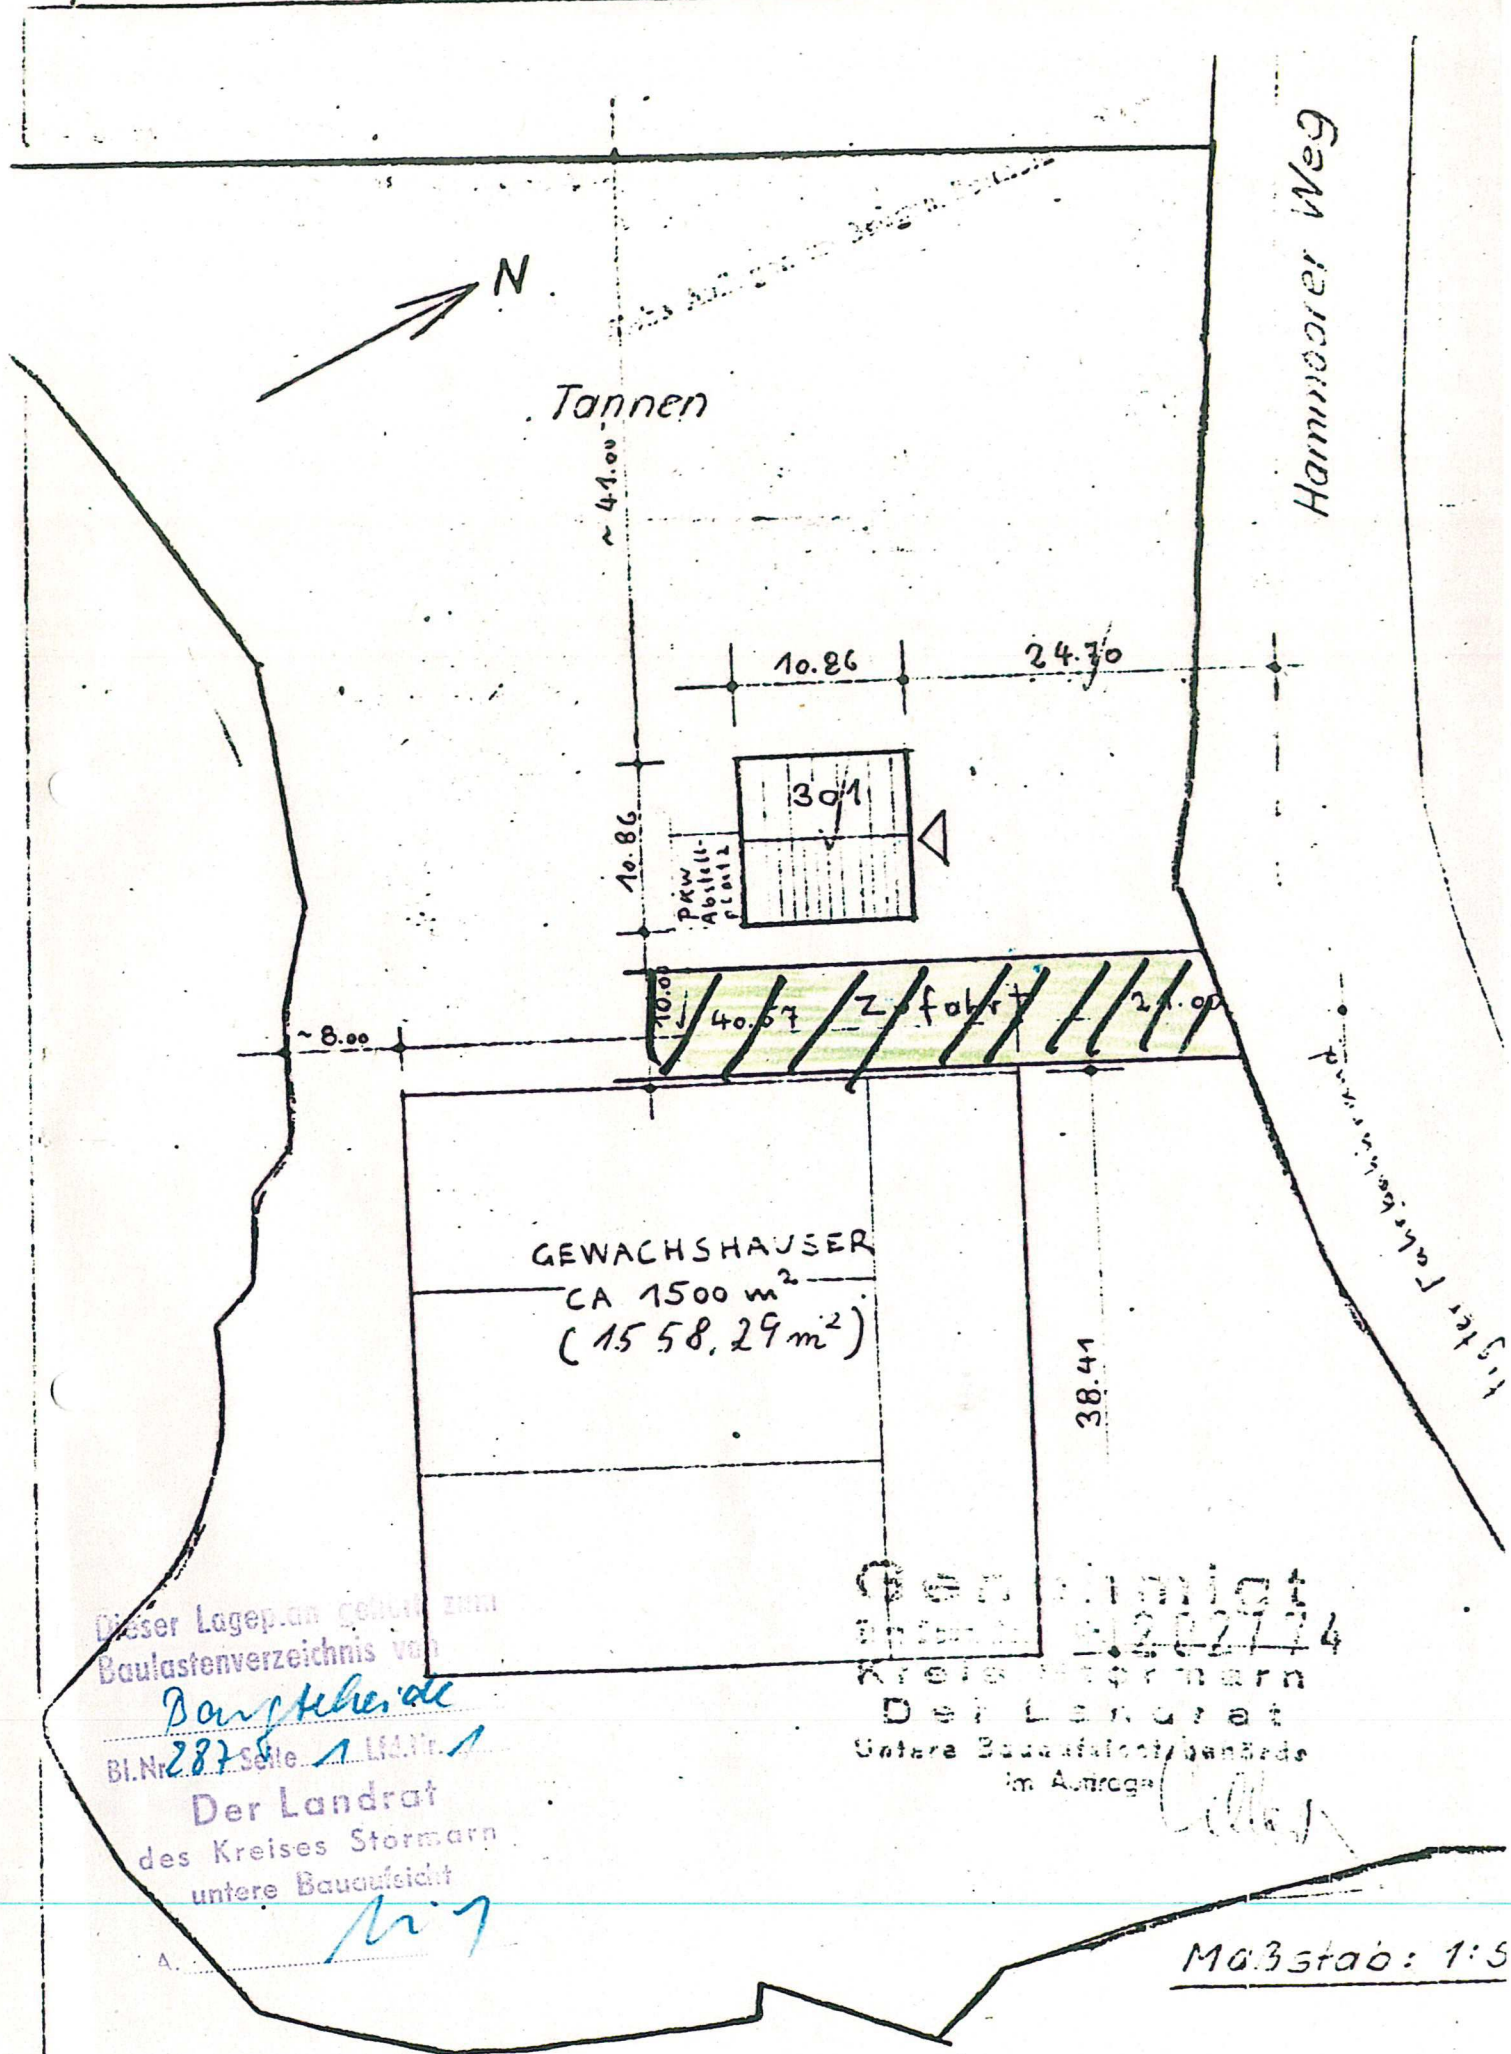 Hammoorer Weg
N
Tannen
~ 41.00
10.86
24.70
301
10.86
PKW
Abstell-
platz
10.00
40.67
Zufahrt
21.00
~ 8.00
GEWACHSHAUSER
CA 1500 m²
(1558,29 m²)
38.41
Dieser Lageplan gehört zum
Baulastenverzeichnis von
Bargteheide
Bl.Nr. 287 Seite 1 Lfd.Nr. 1
Der Landrat
des Kreises Stormarn
untere Bauaufsicht
Genehmigt
Kreis Stormarn
Der Landrat
Untere Bauaufsichtsbehörde
im Auftrage
Maßstab: 1:5